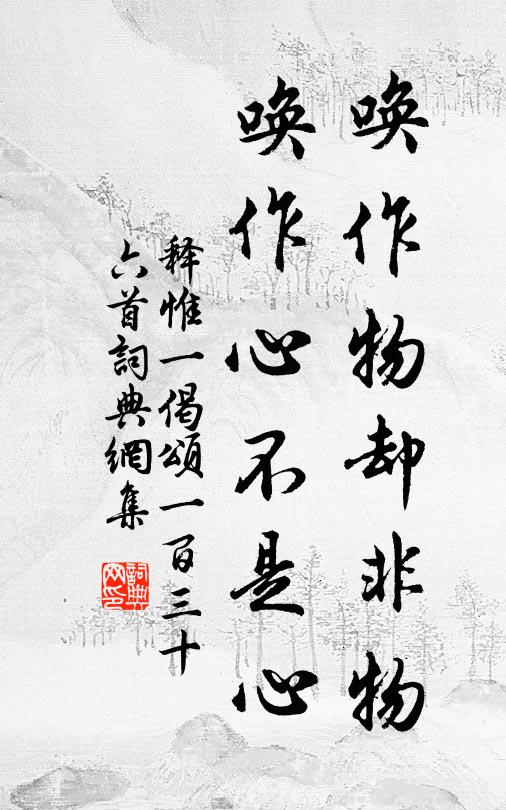 唤作物却非物
唤作心不是心
释惟一偈頌一百三十
六首詞典網集
詞典
网印